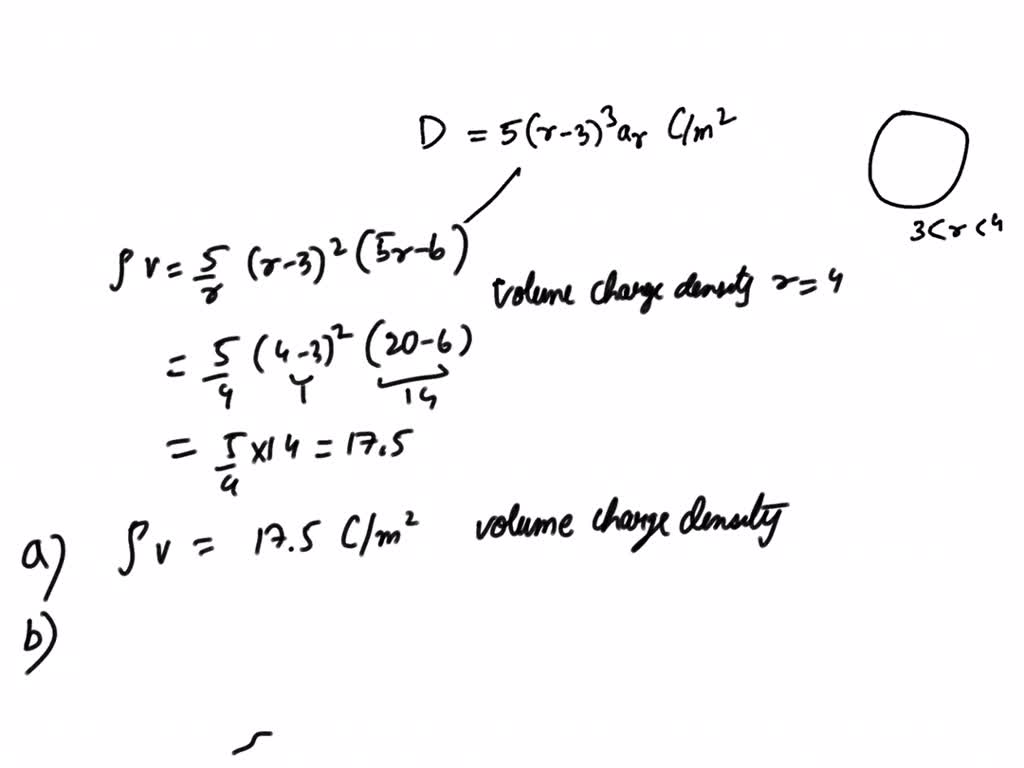 D = 5(r-3)³ aᵣ C/m²
3<r<4
ρv = 5/r (r-3)² (5r-6)
volume charge density r = 4
= 5/4 (4-3)² (20-6)
1 14
= 5/4 × 14 = 17.5
a) ρv = 17.5 C/m² volume charge density
b)